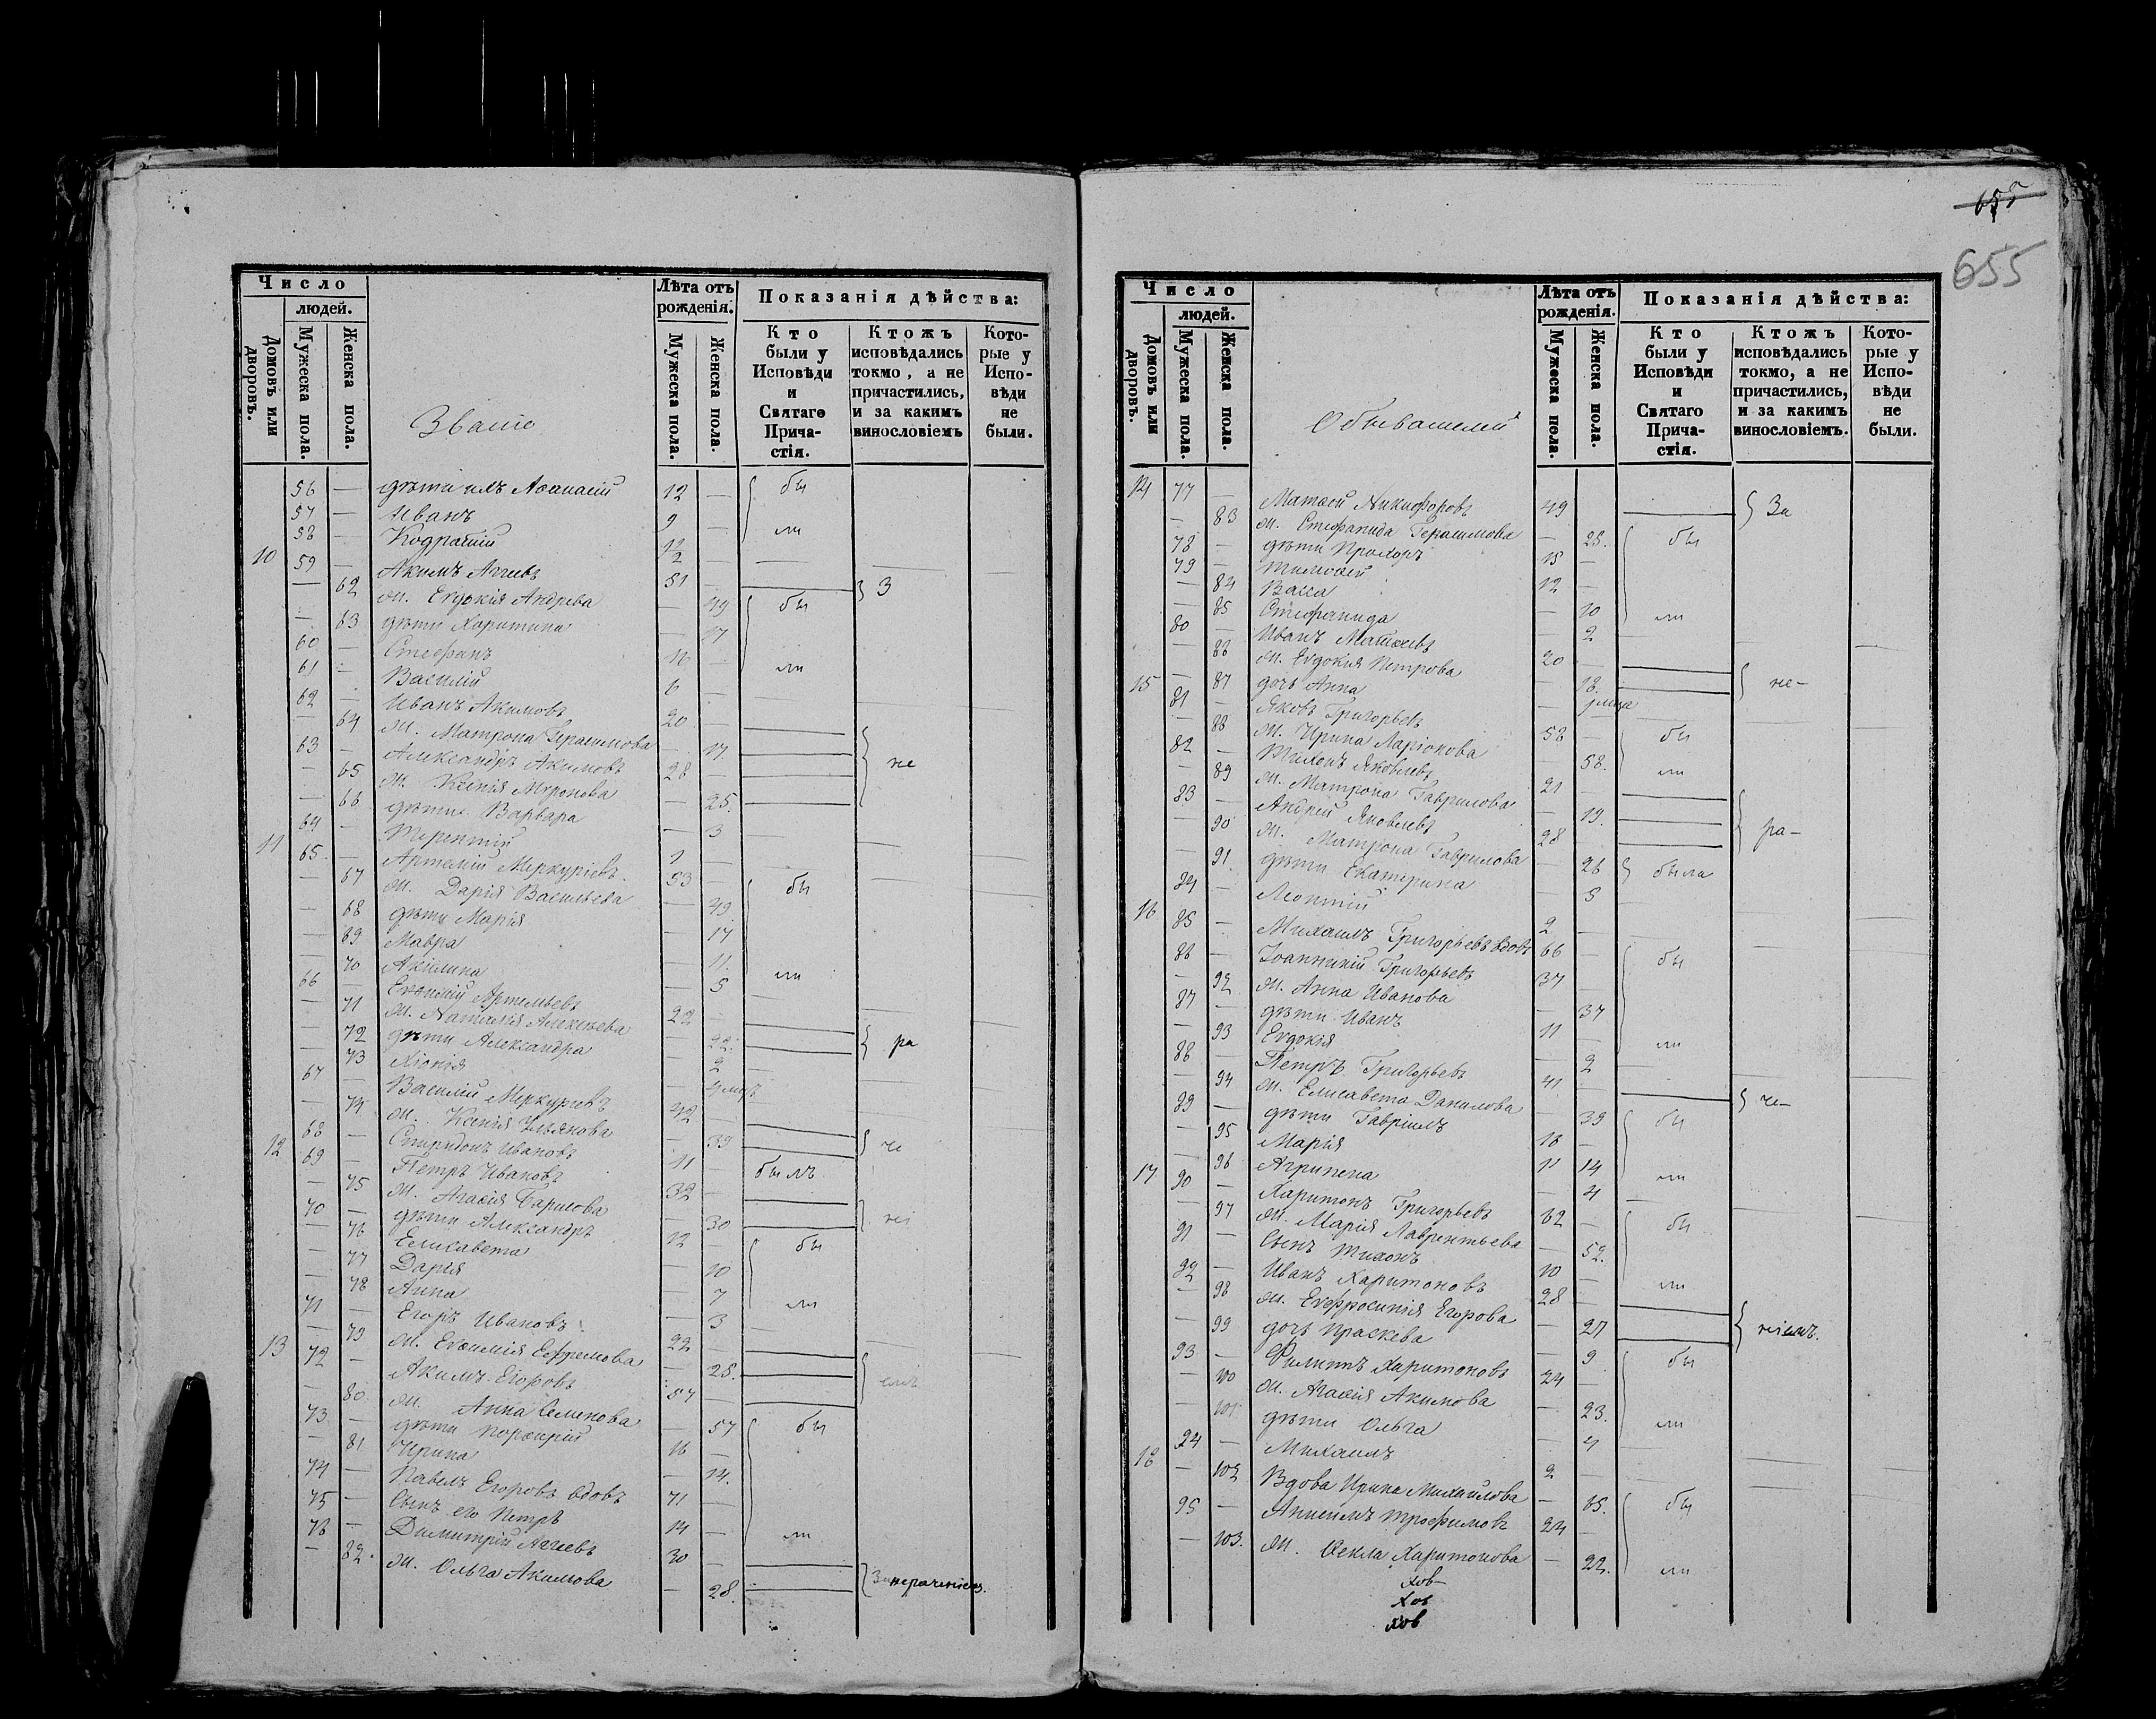 655
655
Число
людей.
Домовъ или дворовъ.
Мужеска пола.
Женска пола.
Званіе
Лѣта отъ рожденія.
Мужеска пола.
Женска пола.
Показанія дѣйства:
Кто были у Исповѣди и Святаго Причастія.
Ктожъ исповѣдались токмо, а не причастились, и за какимъ винословіемъ
Которые у Исповѣди не были.
56 — дѣти ихъ Аѳанасій 12 — бы
57 — Иванъ 9 — ли
58 — Кодратій 2 —
10 59 — Акимъ Аггеевъ 51 — З
— 62 ж. Евдокія Андрева — 49 бы
— 63 дѣти Харитина — 17
60 — Стефанъ 16 — ли
61 — Василій 6 —
62 — Иванъ Акимовъ 20 —
— 64 ж. Матрона Герасимова — 17.
63 — Александръ Акимовъ 28 — не
— 65 ж. Ксенія Миронова — 25.
— 66 дѣти Варвара — 3
64 — Терентій 1 —
11 65. — Артемій Меркуріевъ 53 бы
— 67 ж. Дарія Васильева — 49.
— 68 дѣти Марія — 17
— 69 Мавра — 11.
— 70 Акилина — 5 ли
66 — Евѳимій Артемьевъ 22 —
— 71 ж. Наталія Алексѣева — 22. ра
— 72 дѣти Александра — 2
— 73 Хіонія
67 — Василій Меркуріевъ 42
— 74 ж. Ксенія Ульянова — 39 че
68 — Спиридонъ Ивановъ 11 — былъ
12 69 — Петръ Ивановъ 32 —
— 75 ж. Агаѳія — 30 ні
70 — дѣти Александръ 12 — бы
— 76 Елисавета — 10
— 77 Дарія — 7
— 78 Анна — 3 ли
71 — Егоръ Ивановъ 22 —
— 79 ж. Евѳимія Ефремова — 25. емъ
13 72 — Акимъ Егоровъ 57 —
— 80 ж. Анна Семенова — 57 бы
73 — дѣти Порфирій 16 —
— 81 Ирина — 14.
74 — Павелъ Егоровъ вдовъ 71 —
75 — Сынъ его Петръ 14 — ли
76 — Димитрій Аггеевъ 30 —
— 82. ж. Ольга Акимова — 28. За нераченіемъ.
Число
людей.
Домовъ или дворовъ.
Мужеска пола.
Женска пола.
Обывателей
Лѣта отъ рожденія.
Мужеска пола.
Женска пола.
Показанія дѣйства:
Кто были у Исповѣди и Святаго Причастія.
Ктожъ исповѣдались токмо, а не причастились, и за какимъ винословіемъ.
Которые у Исповѣди не были.
14 77 — Матѳей Никифоровъ 49 За
— 83 ж. Стефанида Герасимова — 28. бы
78 — дѣти Прохоръ 15 —
79 — Тимоѳей 12 —
— 84 Васса — 10
— 85 Стефанида — 2 ли
80 — Иванъ Матѳеевъ 20 —
— 86 ж. Евдокія Петрова — 18. не-
— 87 дочь Анна —
15 81 — Яковъ Григорьевъ 58 — бы
— 88 ж. Ирина Ларіонова — 58. ли
82 — Тихонъ Яковлевъ 21 —
— 89 ж. Матрона Гаврилова — 19.
83 — Андрей Яковлевъ 28 ра-
— 90 ж. Матрона Гаврилова — 26 была
— 91. дѣти Екатерина — 5
84 — Леонтій 2 —
16 85 — Михаилъ Григорьевъ вдовъ 66 — бы
86 — Іоанникій Григорьевъ 37 —
— 92 ж. Анна Иванова — 37
87 — дѣти Иванъ 11 —
— 93 Евдокія — 2 ли
88 — Петръ Григорьевъ 41 —
— 94 ж. Елисавета Данилова — 39 че-
89 — дѣти Гавріилъ 16 — бы
— 95 Марія 14
— 96 Агрипена — 4 ли
17 90 — Харитонъ Григорьевъ 62 — бы
— 97 ж. Марія Лаврентьева — 52.
91 — Сынъ Тихонъ 10 — ли
92 — Иванъ Харитоновъ 28 —
— 98 ж. Евфросинія Егорова — 27 ніемъ.
— 99 дочь Праскева — 9
93 — Филиппъ Харитоновъ 24 — бы
— 100 ж. Агаѳія Акимова — 23. ли
— 101 дѣти Ольга — 4
94 — Михаилъ 2 —
18 — 102 Вдова Ирина Михайлова — 65. бы
95 — Трофимовъ 24 —
— 103. ж. Ѳекла Харитонова — 22. ли